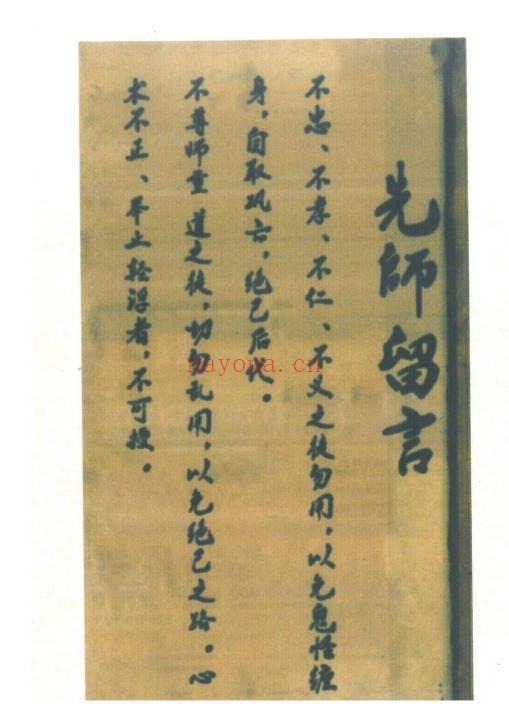 先師留言
不忠、不孝、不仁、不义之徒勿用，以免鬼怪缠
身，自取巩亡，绝己后代。
不尊师重 道之徒，切勿乱用，以免绝己之路。心
术不正、举止轻浮者，不可授。
nayona.cn